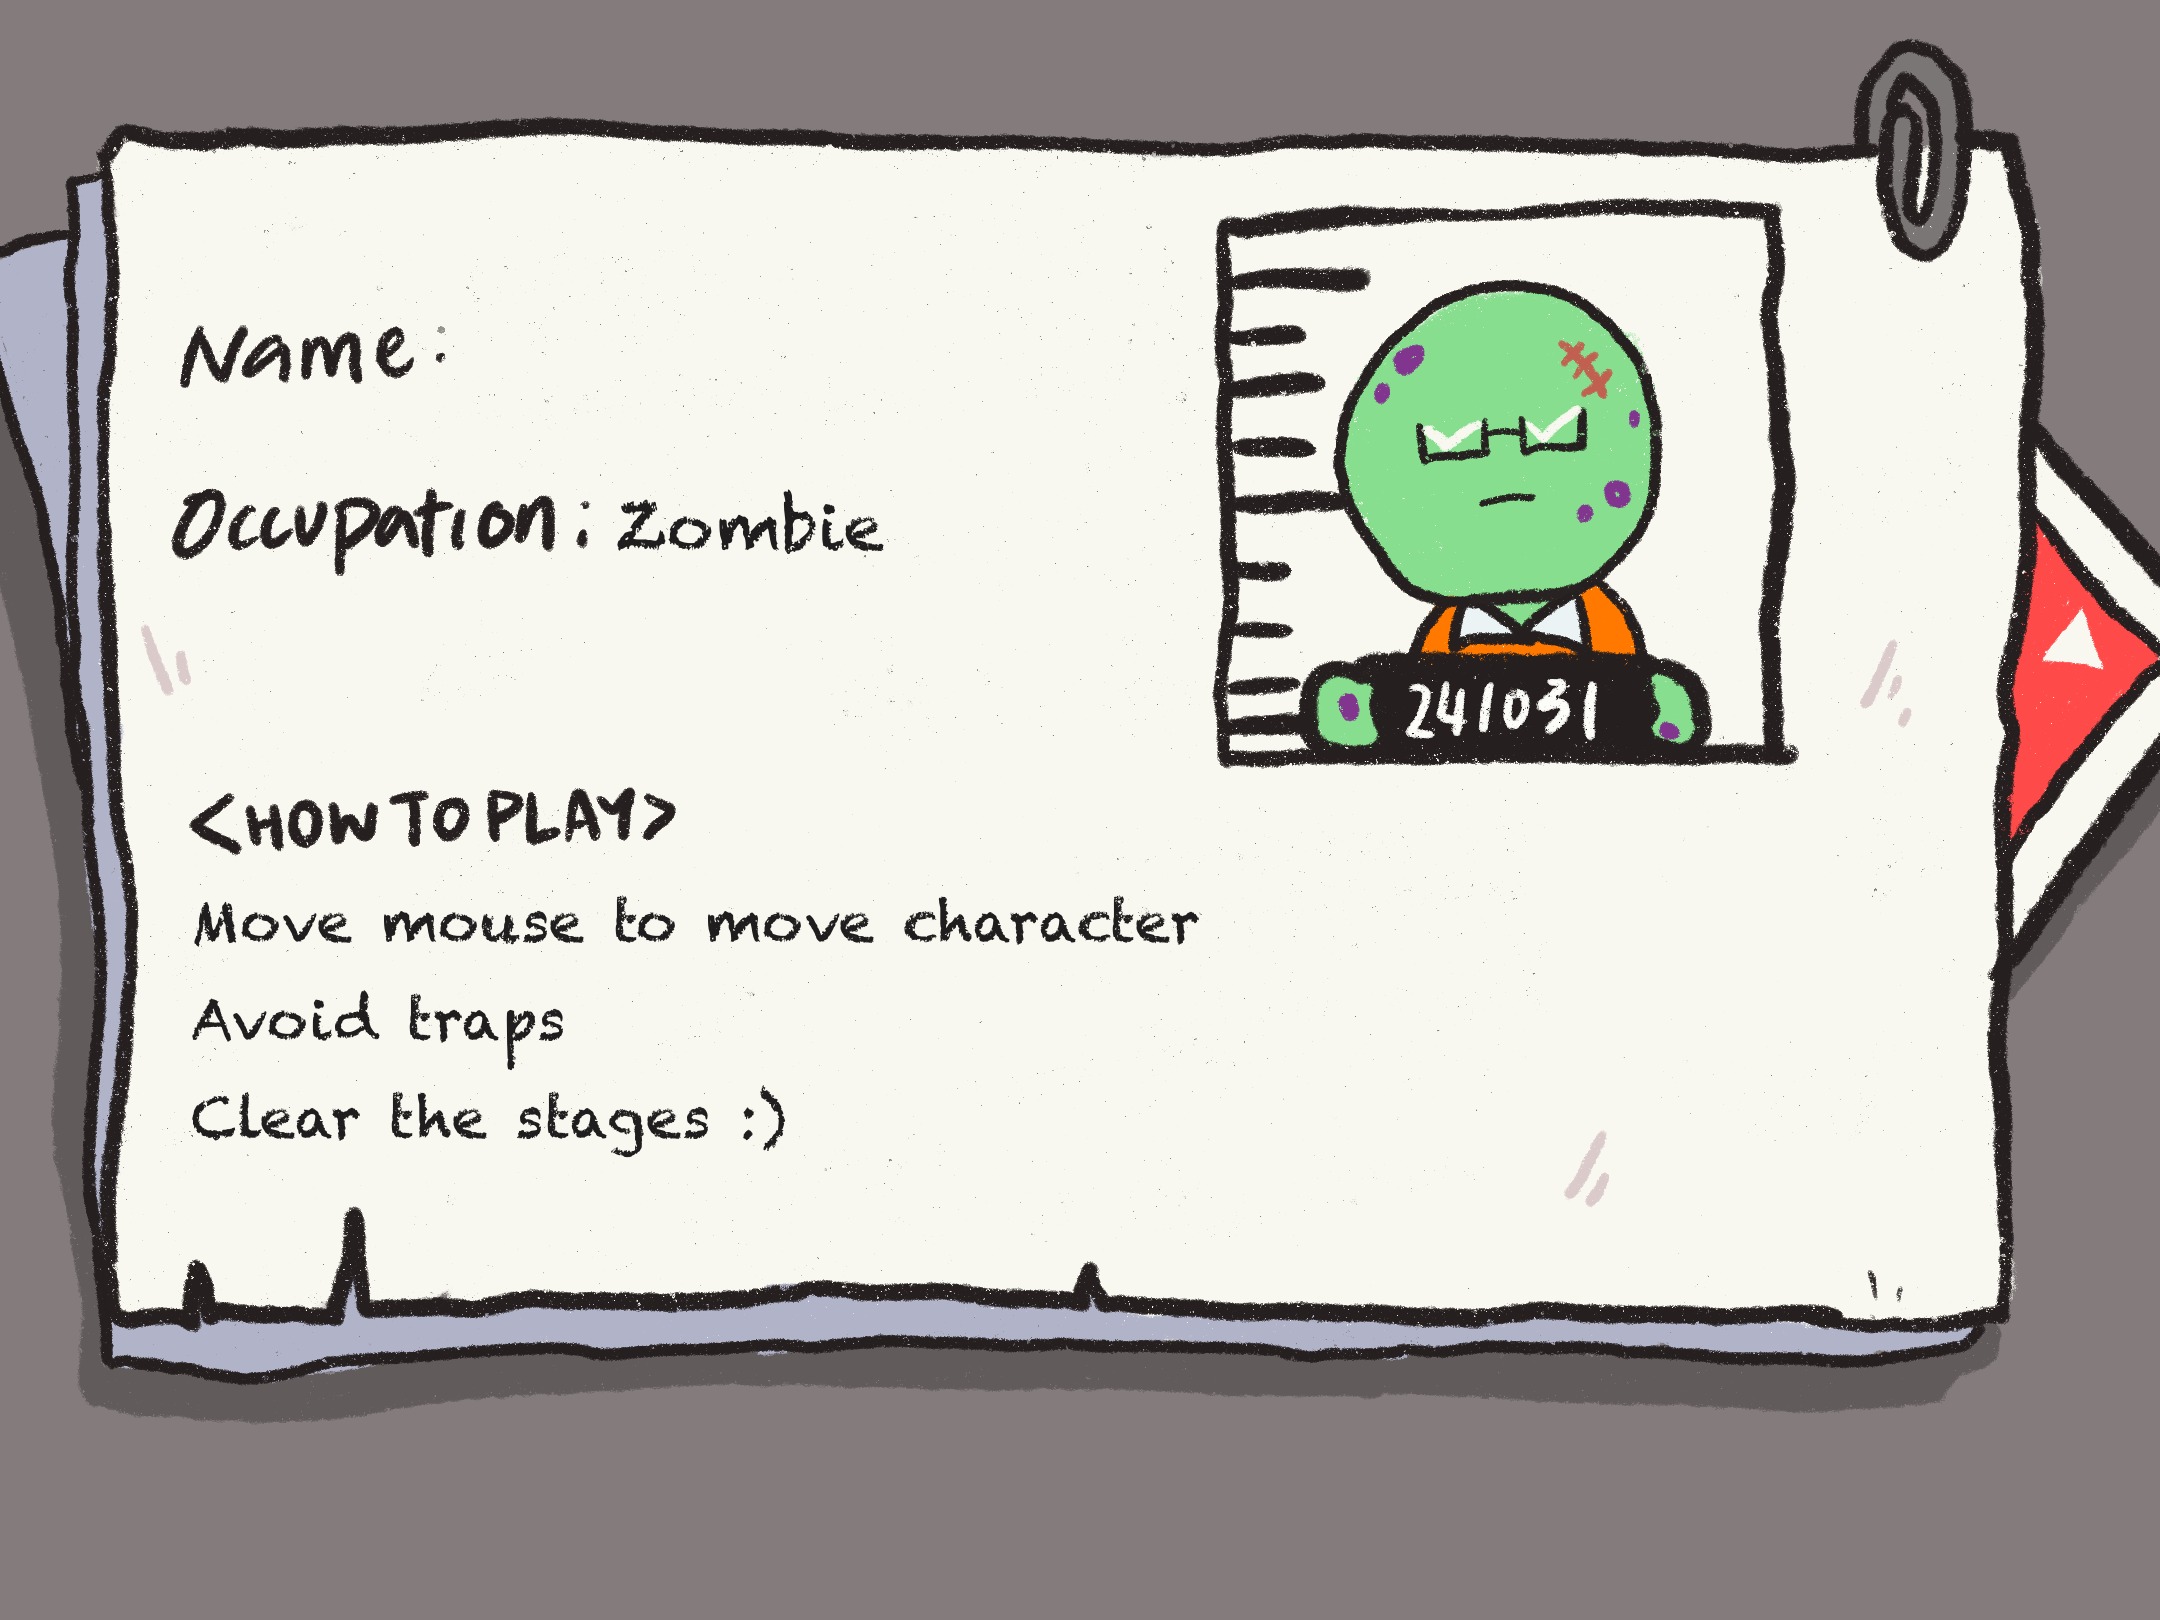 Name:
Occupation: Zombie
241031
<HOW TO PLAY>
Move mouse to move character
Avoid traps
Clear the stages :)